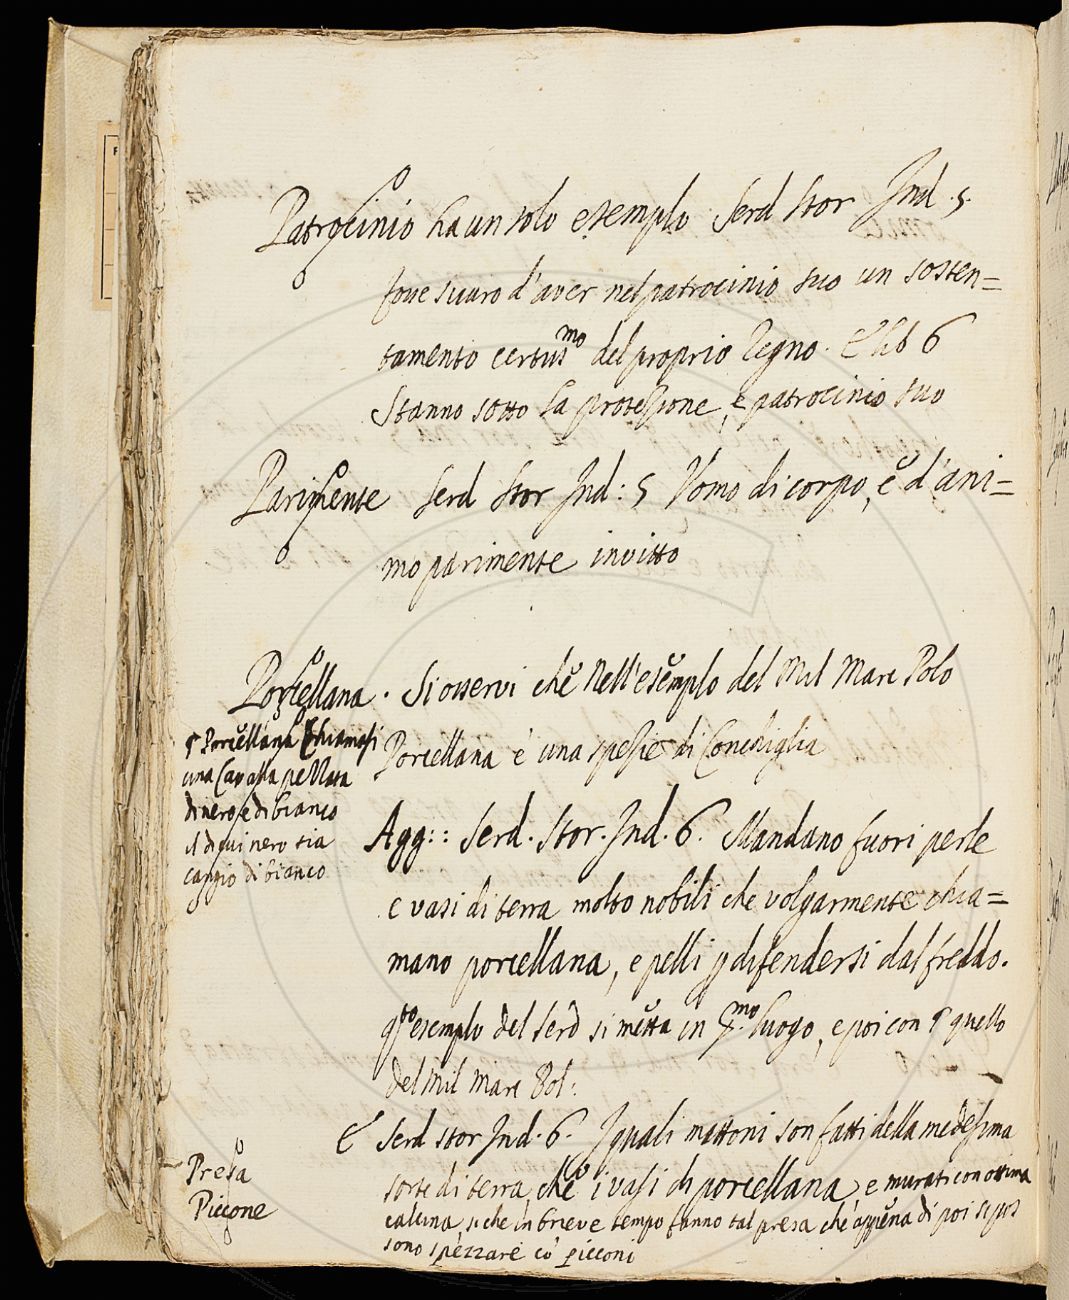 Patrocinio ha un solo esemplo Serd Stor Ind. 5.
fosse sicuro d'aver nel patrocinio suo un sosten=
tamento certiss.mo del proprio Regno. E lib 6
Stanno sotto la protezione, e patrocinio suo
Parimente Serd Stor Ind: 5 Vomo di corpo, e d'ani=
mo parimente invitto
Porcellana. Si osservi che nell'esemplo del Mil Marc Polo
Porcellana è una spezie di Conchiglia
§ Porcellana Chiamasi
una Cavalla pezzata
di nero, e di bianco
il di cui nero sia
cangio di bianco
Agg:: Serd. Stor. Ind. 6. Mandano fuori perle
e vasi di terra molto nobili che volgarmente chia=
mano porcellana, e pelli p difendersi dal freddo.
q.to esemplo del Serd si metta in p.mo luogo, e poi con § quello
del Mil Marc Pol:
E Serd Stor Ind. 6. I quali mattoni son fatti della medesima
sorte di terra, che i vasi di porcellana, e murati con ottima
calcina, si che in breve tempo fanno tal presa che appena di poi si pos
sono spezzare co' picconi
Presa
Piccone